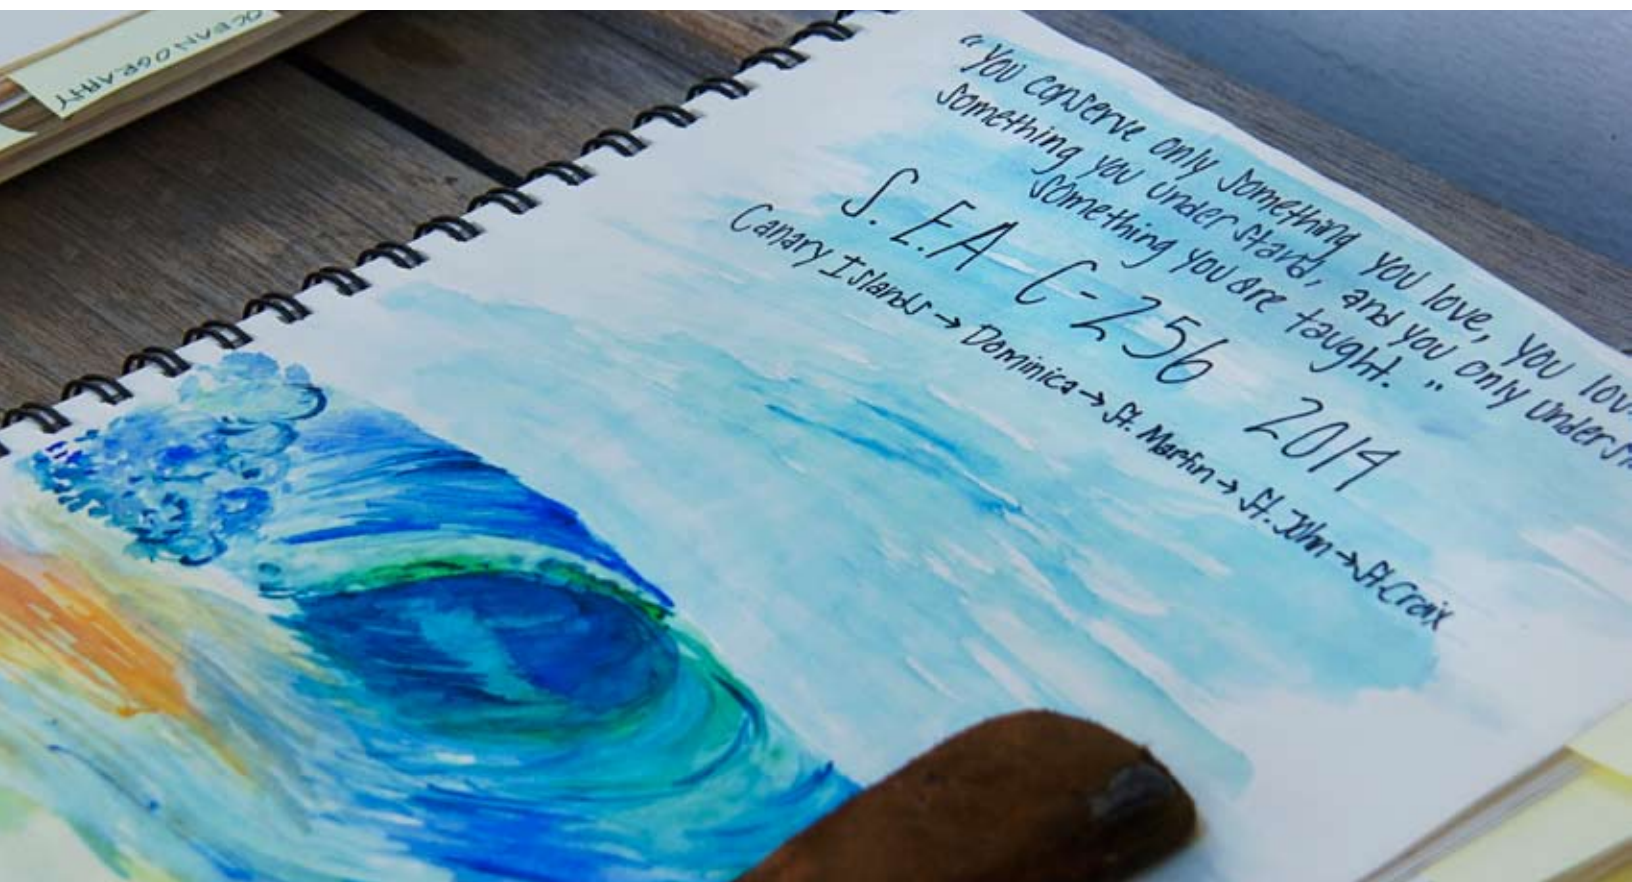 OCEANOGRAPHY
"You conserve only something you love, you
something you understand, and you only
something you are taught."
S.E.A C-256 2014
Canary Islands → Dominica → St. Martin → St. John → St. Croix